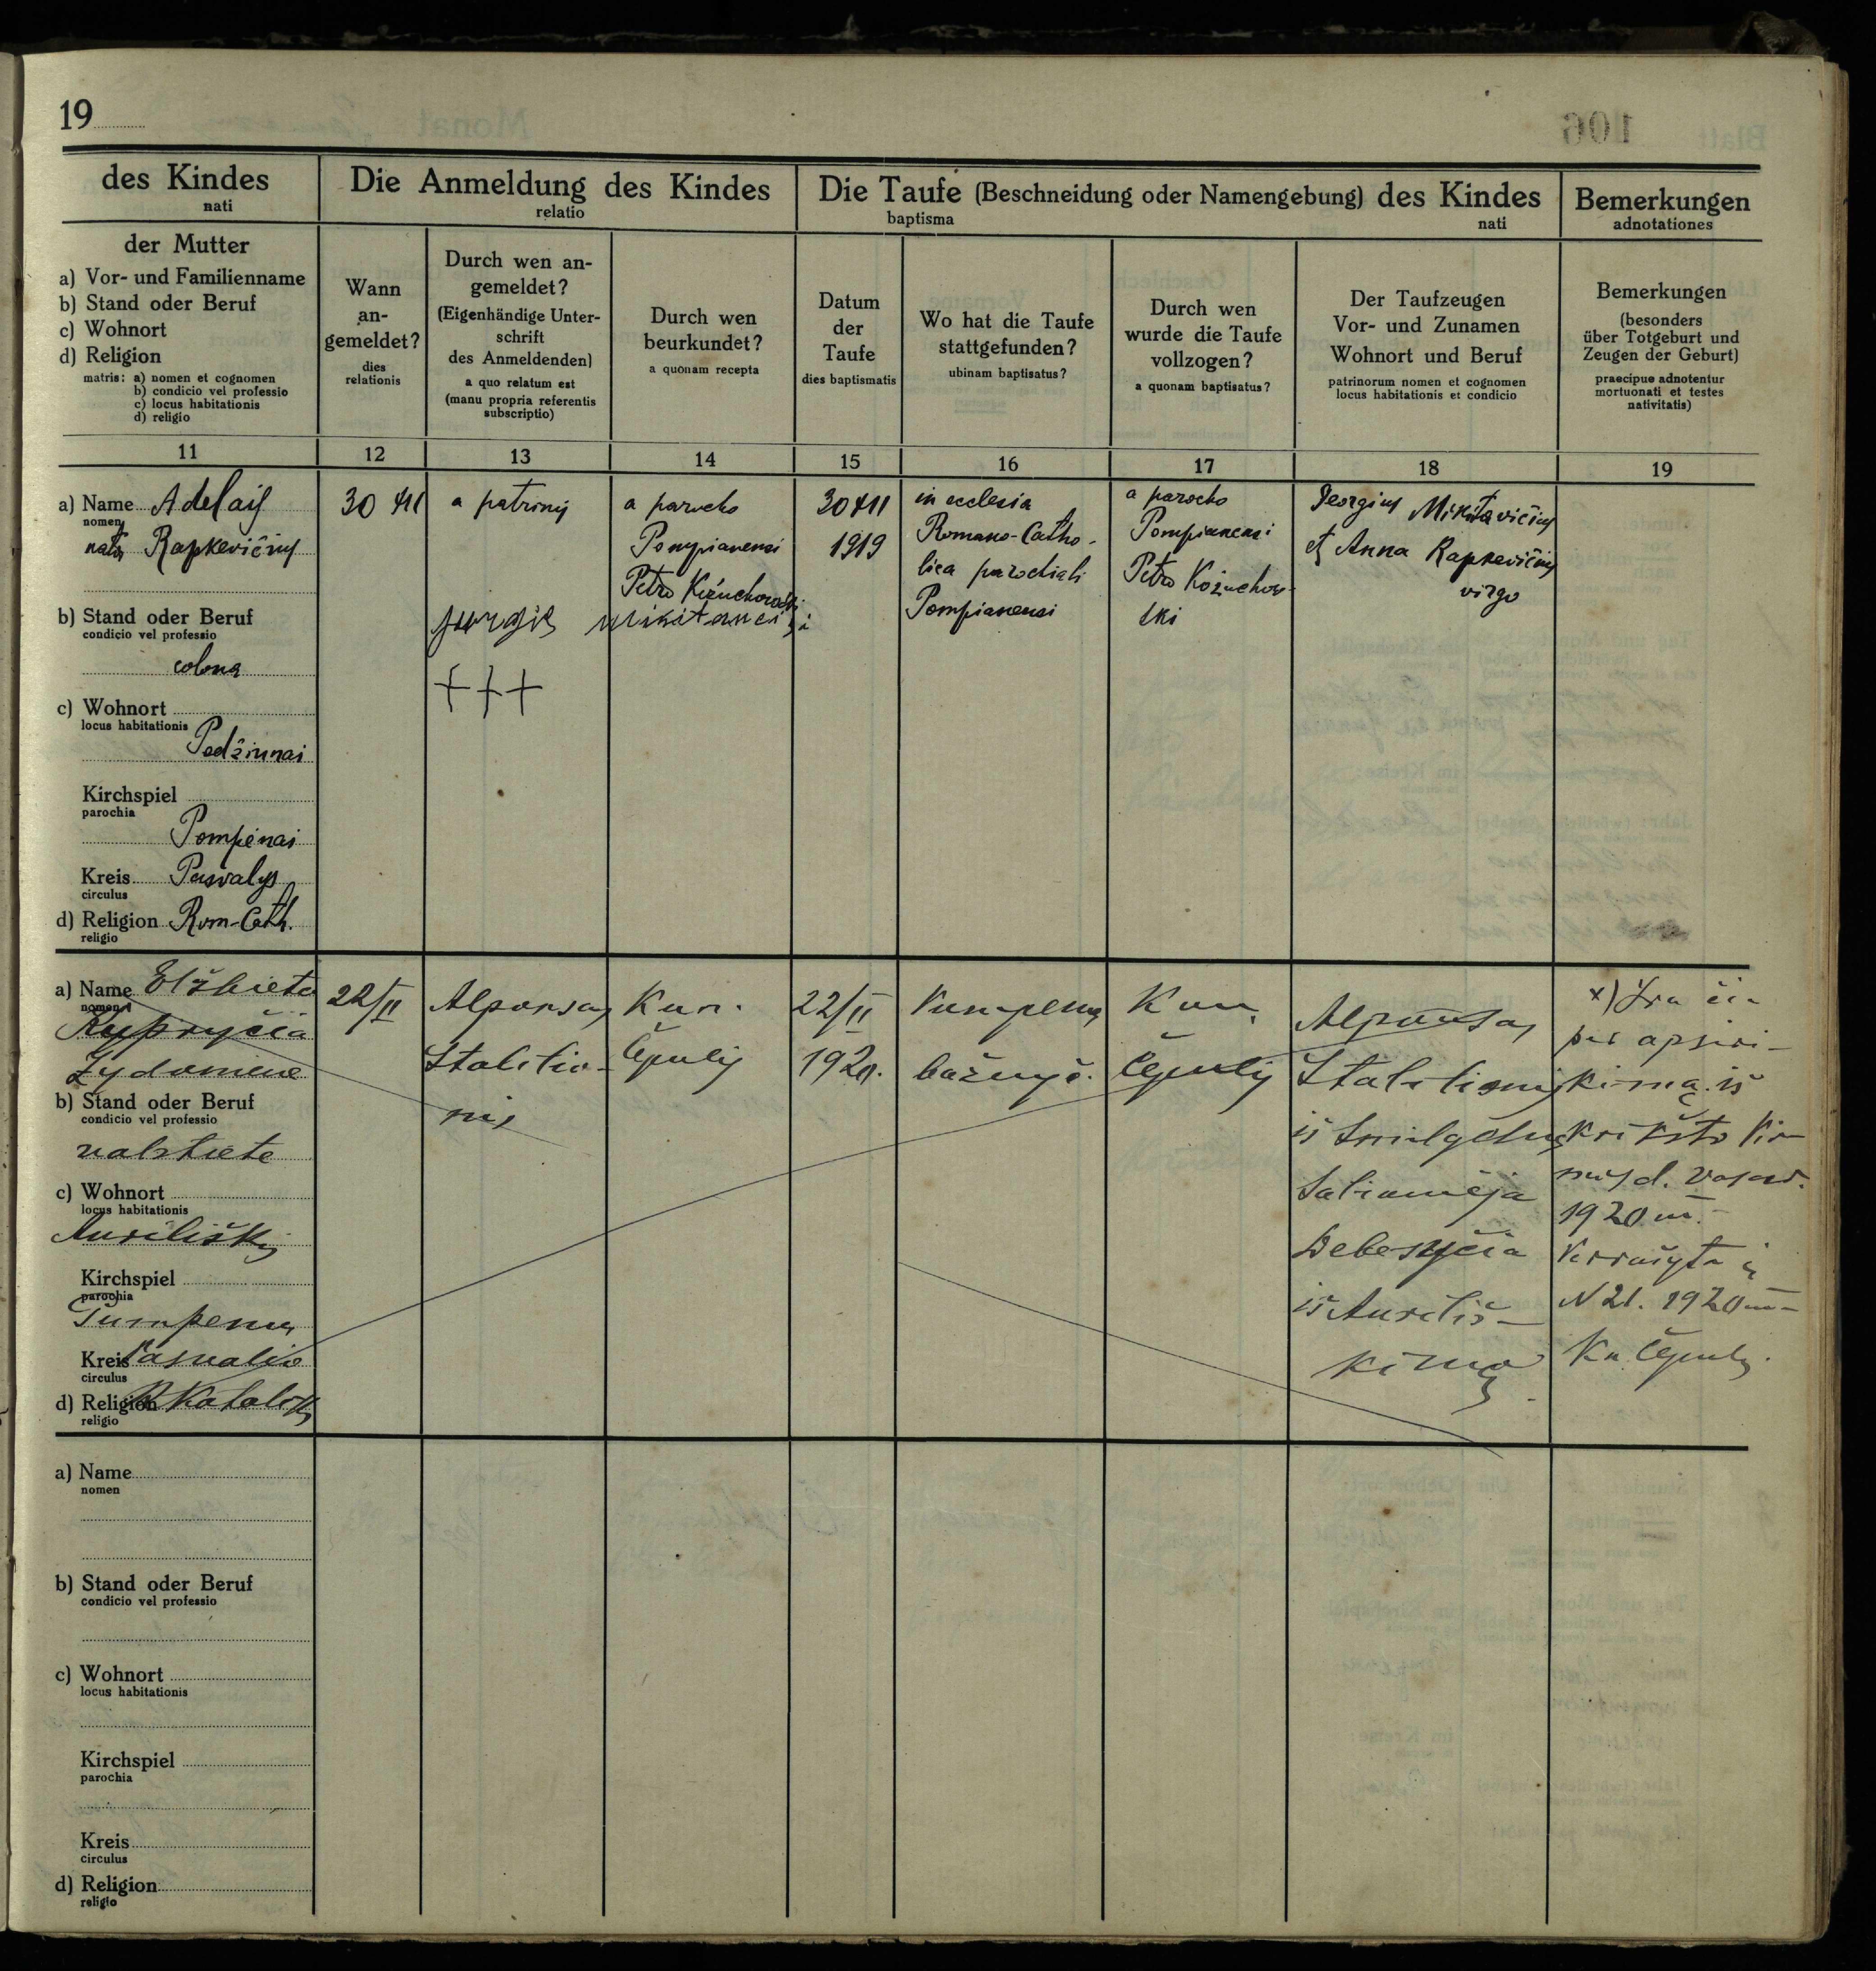 19
des Kindes
nati
Die Anmeldung des Kindes
relatio
Die Taufe (Beschneidung oder Namengebung) des Kindes
baptisma nati
Bemerkungen
adnotationes
der Mutter
a) Vor- und Familienname
b) Stand oder Beruf
c) Wohnort
d) Religion
matris: a) nomen et cognomen
b) condicio vel professio
c) locus habitationis
d) religio
Wann
an-
gemeldet?
dies
relationis
Durch wen an-
gemeldet?
(Eigenhändige Unter-
schrift
des Anmeldenden)
a quo relatum est
(manu propria referentis
subscriptio)
Durch wen
beurkundet?
a quonam recepta
Datum
der
Taufe
dies baptismatis
Wo hat die Taufe
stattgefunden?
ubinam baptisatus?
Durch wen
wurde die Taufe
vollzogen?
a quonam baptisatus?
Der Taufzeugen
Vor- und Zunamen
Wohnort und Beruf
patrinorum nomen et cognomen
locus habitationis et condicio
Bemerkungen
(besonders
über Totgeburt und
Zeugen der Geburt)
praecipue adnotentur
mortuonati et testes
nativitatis)
11 12 13 14 15 16 17 18 19
a) Name Adelais
nomen
nata Rapkevičius
b) Stand oder Beruf
condicio vel professio
colona
c) Wohnort
locus habitationis
Pedžiunai
Kirchspiel
parochia
Pompenai
Kreis Pasvalys
circulus
d) Religion Rom-Cath.
religio
30 XII
a patrinis
jurgis mikitavei
+++
a parocho
Pompianensi
Petro Kožuchowski
30 XII
1919
in ecclesia
Romano-Catho-
lica parochiali
Pompianensi
a parocho
Pompianensi
Petro Kožuchow-
ski
Georgius Mikitavičius
et Anna Rapkevičius
virgo
a) Name Elžbieta
nomen
Kupryčia
Žydoniene
b) Stand oder Beruf
condicio vel professio
valstiete
c) Wohnort
locus habitationis
Auriliškių
Kirchspiel
parochia
Pumpenų
Kreis Pasvalio
circulus
d) Religion R Katalikų
religio
22/II
Alponsas
Stalilio-
nis
Kun.
Čepulis
22/II
1920.
Pumpenų
bažnyč.
Kun.
Čepulis
Alponsas
Stalilionis
iš Smilgelių
Saliomėja
Bebesyčia
iš Auriliš-
kių
x) Yra čia
per apsiri-
kimą iš
Krikšto Kn
d. vasar.
1920 m.
Perrašyta į
N 21. 1920 m-
Kn. Čepulis.
a) Name
nomen
b) Stand oder Beruf
condicio vel professio
c) Wohnort
locus habitationis
Kirchspiel
parochia
Kreis
circulus
d) Religion
religio